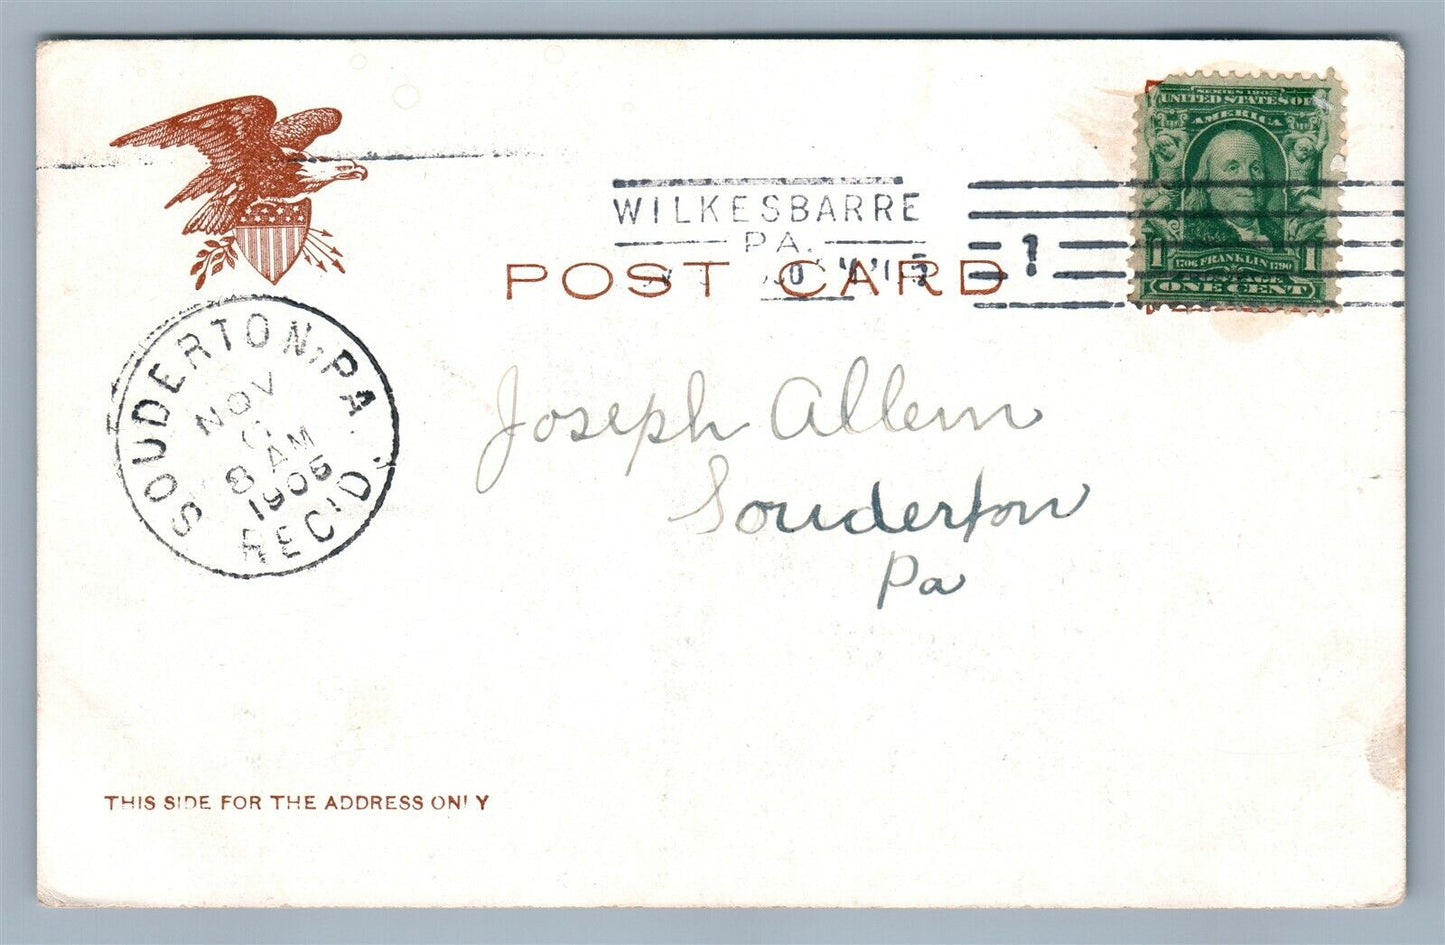 SERIES 1902
UNITED STATES OF
AMERICA
1 1706 FRANKLIN 1790 1
ONE CENT
WILKESBARRE
PA.
1
POST CARD
SOUDERTON, PA.
NOV
8 AM
1905
REC'D.
Joseph Allem
Souderton
Pa
THIS SIDE FOR THE ADDRESS ONLY